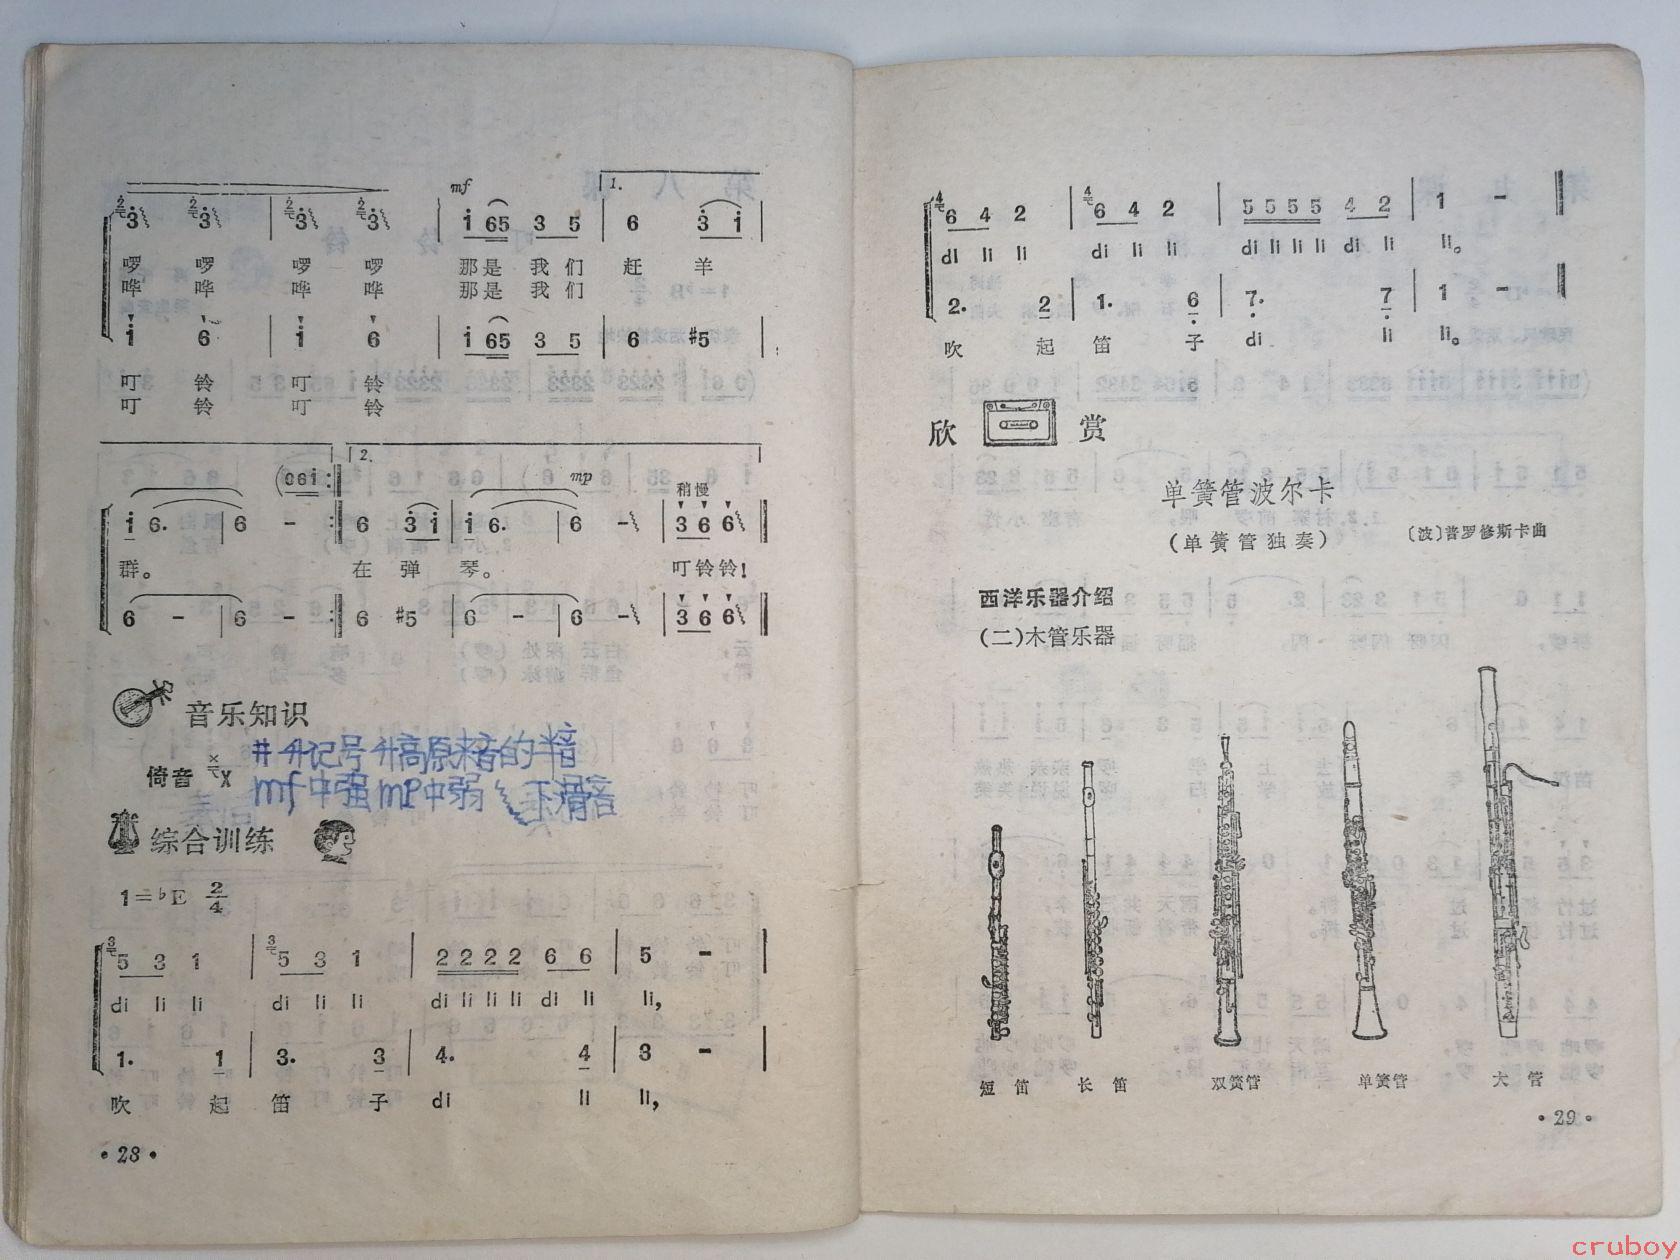 mf 1.
2 3 2 3 | 2 3 2 3 | i 65 3 5 | 6 3 i |
啰 啰 啰 啰 那是 我们 赶 羊
哗 哗 哗 哗 那是 我们
i 6 i 6 | i 65 3 5 | 6 #5 |
叮 铃 叮 铃
叮 铃 叮 铃
2.
(061 mp 稍慢
i 6. | 6 - :‖ 6 3 i | i 6. | 6 - | 3 6 6 ‖
群。 在 弹 琴。 叮铃铃!
6 - | 6 - :‖ 6 #5 | 6 - | 6 - | 3 6 6 ‖
音乐知识
倚音 X X
# 升记号升高原来音的半音
mf中强 mp中弱 下滑音
综合训练
1=♭E 2/4
3 5 3 1 | 3 5 3 1 | 2 2 2 2 6 6 | 5 - |
di li li di li li di li li li di li li,
1. 1 | 3. 3 | 4. 4 | 3 - |
吹 起 笛 子 di li li,
• 28 •
4 6 4 2 | 4 6 4 2 | 5 5 5 5 4 2 | 1 - ‖
di li li di li li di li li li di li li。
2. 2 | 1. 6 | 7. 7 | 1 - ‖
吹 起 笛 子 di li li。
欣 赏
单簧管波尔卡
(单簧管独奏) 〔波〕普罗修斯卡曲
西洋乐器介绍
(二)木管乐器
短 笛 长 笛 双簧管 单簧管 大 管
• 29 •
cruboy